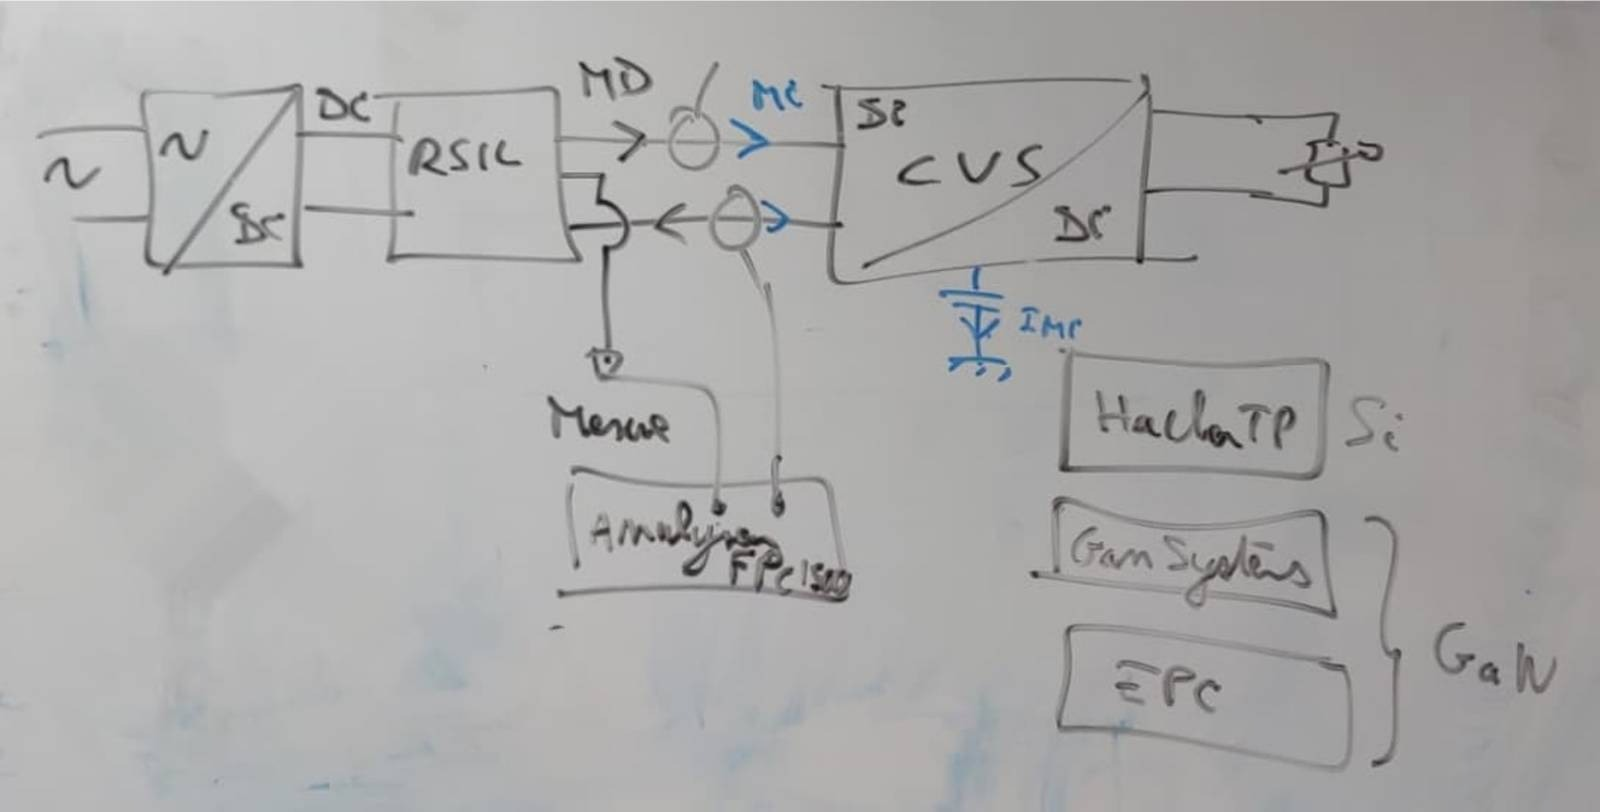 MD
MC
DC
~
~
DC
RSIL
DC
CVS
DC
IMC
Mesure
Analyseur
FPC1500
HachaTP
Si
Gan Systems
EPC
GaN